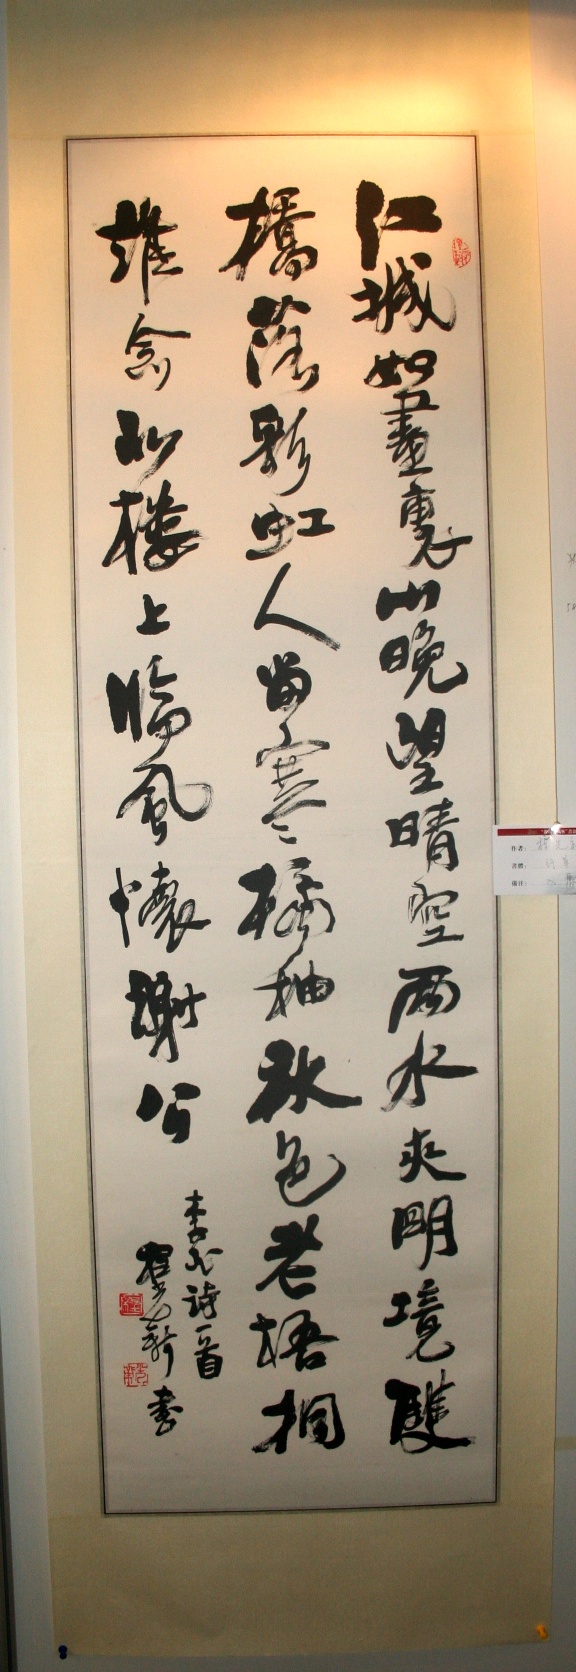 江城如畫裏山晚望晴空兩水夾明境雙
橋落彩虹人寒橘柚秋色老梧桐
誰念北楼上臨風懷謝公
李白詩一首
書
作者：
書體：
備注：